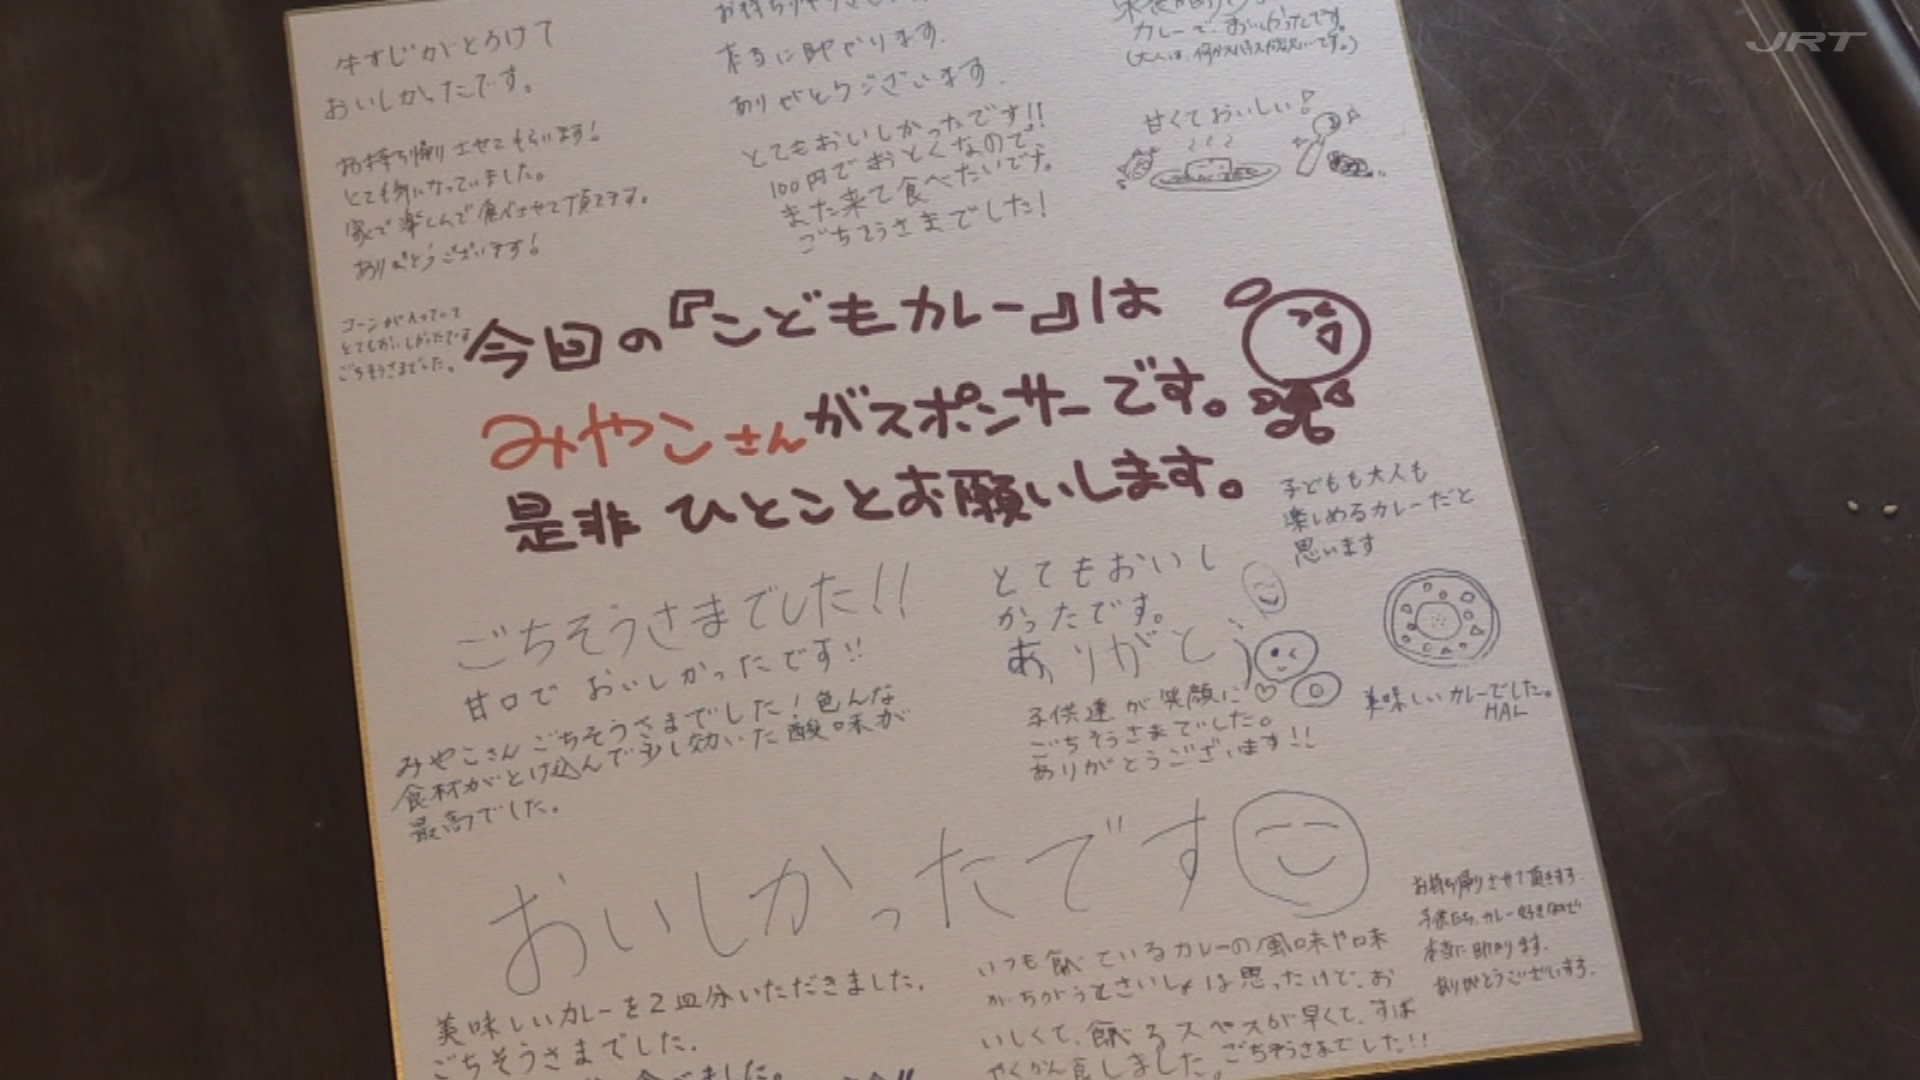 JRT
牛すじがとろけて
おいしかったです。
お持ち帰りさせてもらいます!
とても気になっていました。
家で楽しんで食べさせて頂きます。
ありがとうございます!
コーンが入っていて
とてもおいしかったです
ごちそうさまでした。
本当に助かります.
ありがとうございます.
とてもおいしかったです!!
100円でおとくなので
また来て食べたいです。
ごちそうさまでした!
カレーで、おいしかったです。
甘くておいしい♪
今回の『こどもカレー』は
みやこさんがスポンサーです。
是非ひとことお願いします。
子どもも大人も
楽しめるカレーだと
思います
ごちそうさまでした!!
甘口でおいしかったです!!
みやこさんごちそうさまでした!色んな
食材がとけ込んで少し効いた酸味が
最高でした。
とてもおいし
かったです。
ありがとう
子供達が笑顔に♡
ごちそうさまでした。
ありがとうございます!!
美味しいカレーでした。
HAL
おいしかったです
お持ち帰りさせて頂きます.
子供たち、カレー好きなので
本当に助かります.
ありがとうございます.
美味しいカレーを2皿分いただきました.
ごちそうさまでした.
いつも食べているカレーの風味や味
がちがうとさいしょは思ったけど、お
いしくて、食べるスペースが早くて、すば
やくかん食しました。ごちそうさまでした!!